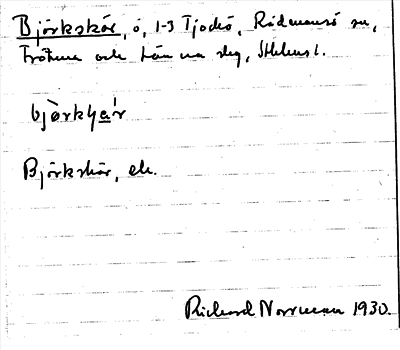 Björkskär, ö, 1-3 Tjockö, Rådmansö sn,
Frötuna och Länna slg, Sthlms l.
bjö̀rkʃä́r
Björkskär, ek.
Richard Norrman 1930.